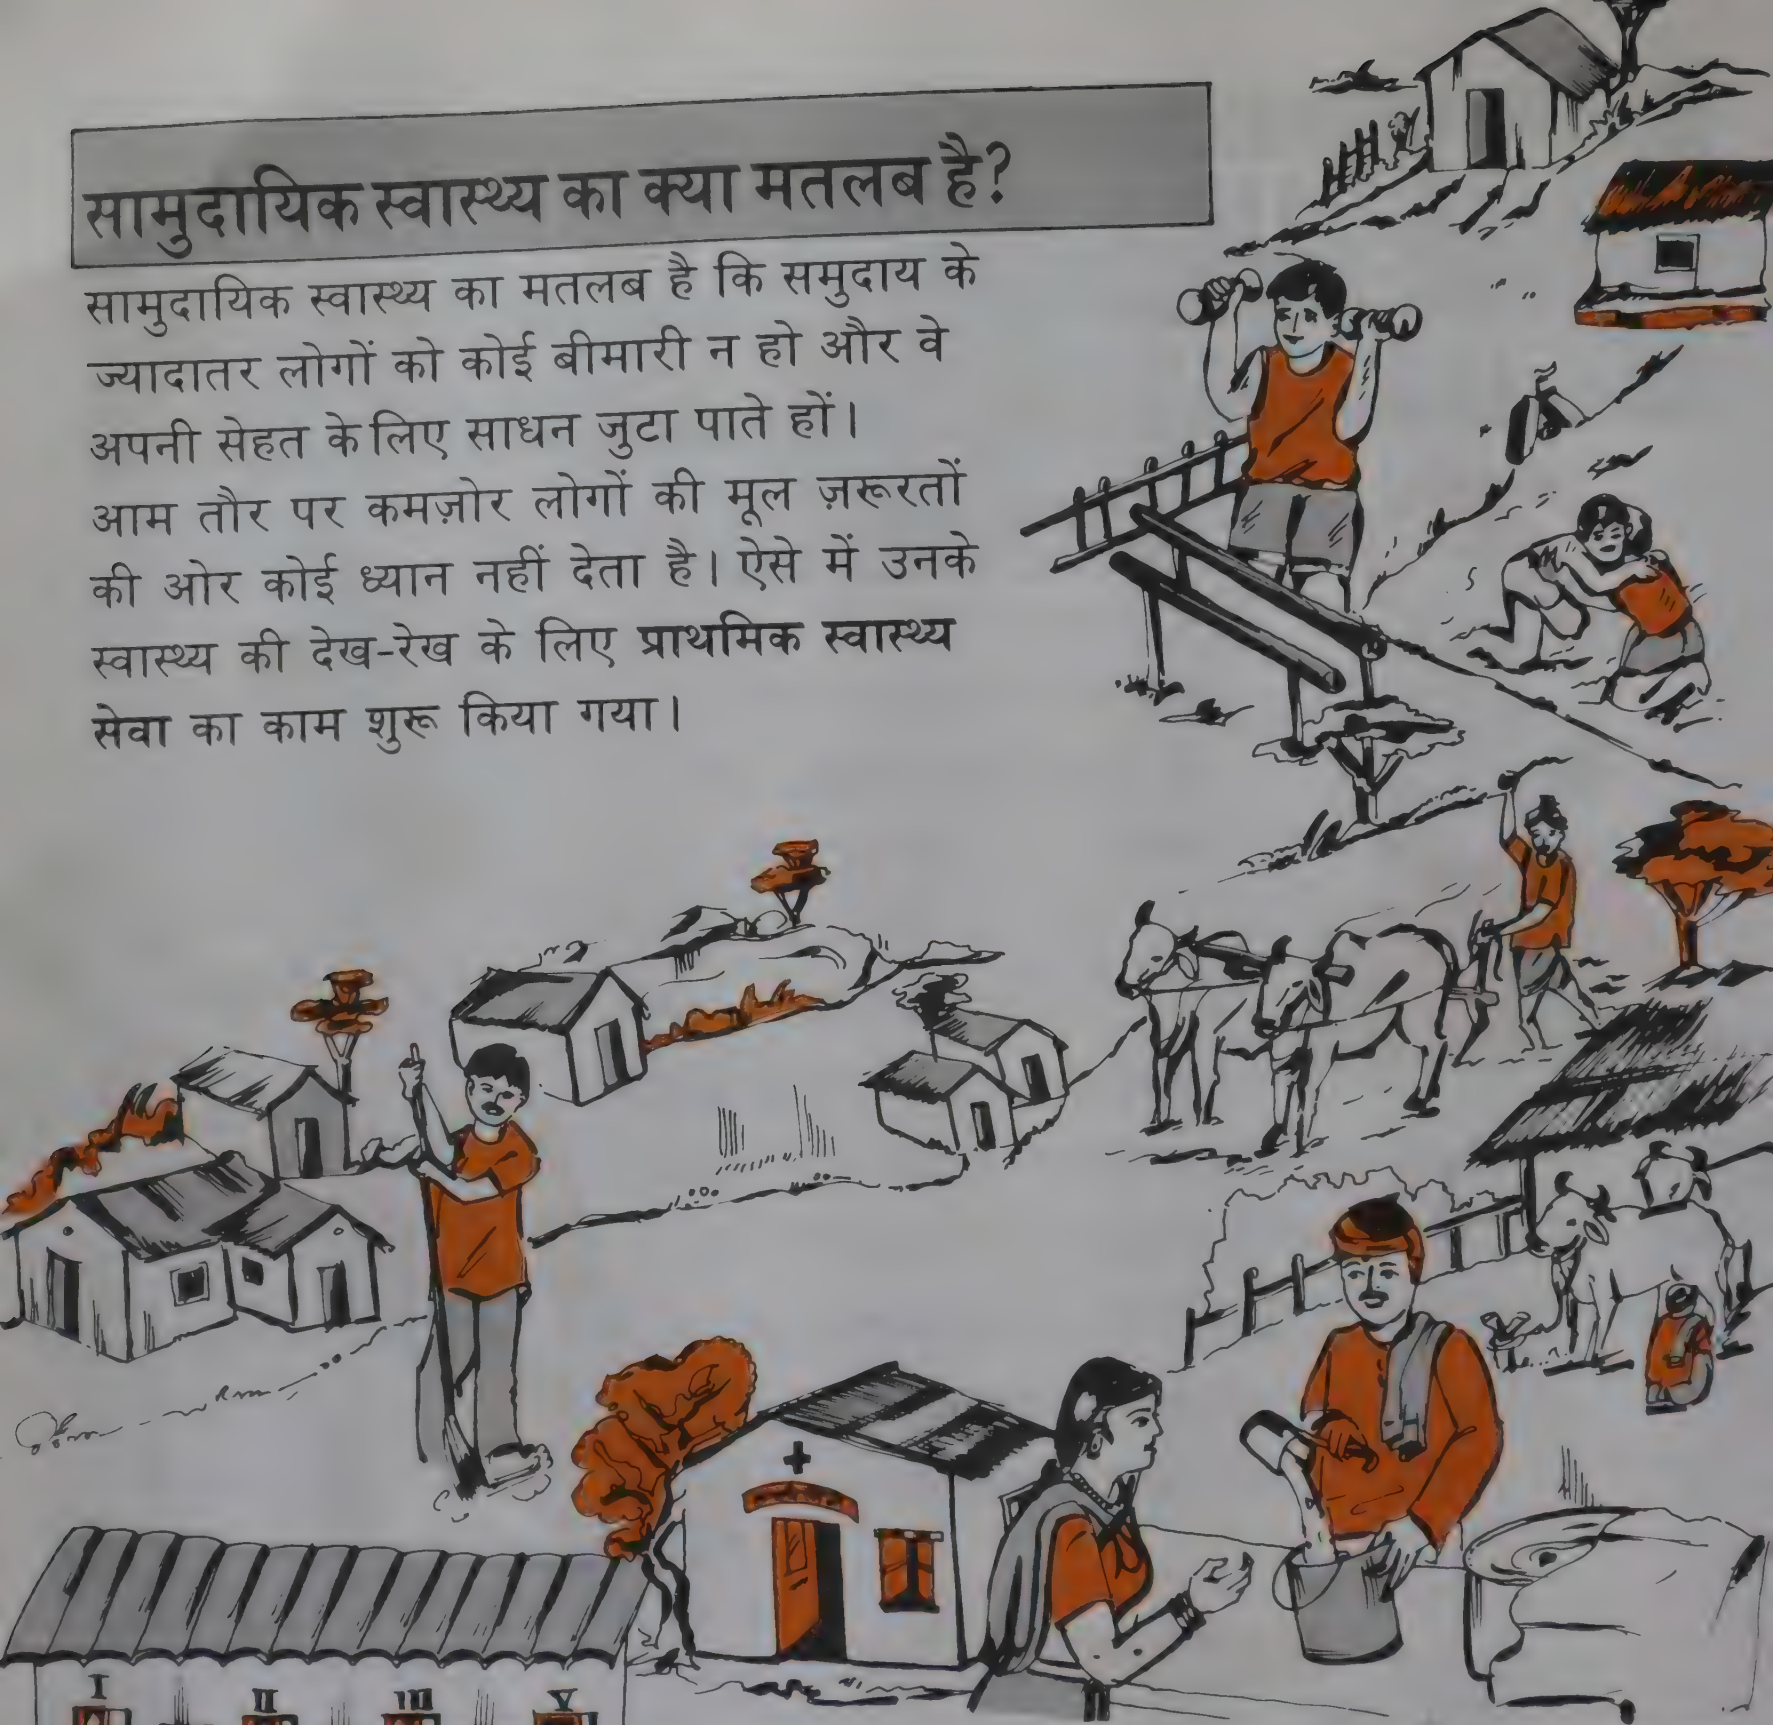 सामुदायिक स्वास्थ्य का क्या मतलब है?
सामुदायिक स्वास्थ्य का मतलब है कि समुदाय के
ज्यादातर लोगों को कोई बीमारी न हो और वे
अपनी सेहत के लिए साधन जुटा पाते हों।
आम तौर पर कमज़ोर लोगों की मूल ज़रूरतों
की ओर कोई ध्यान नहीं देता है। ऐसे में उनके
स्वास्थ्य की देख-रेख के लिए प्राथमिक स्वास्थ्य
सेवा का काम शुरू किया गया।
I II III V